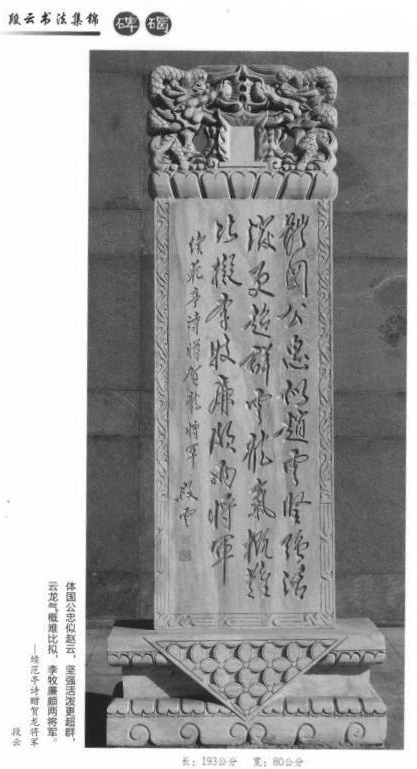 段云书法集锦 碑碣
體国公忠似趙雲堅强活
潑更超群雲龍氣概難
比擬李牧廉頗两將軍
續范亭詩贈賀龍將軍 段雲
体国公忠似赵云，坚强活泼更超群，
云龙气概难比拟，李牧廉颇两将军。
——续范亭诗赠贺龙将军
段云
长：193公分 宽：80公分